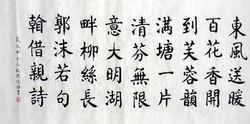 東風送暖
百花香開
到芙蓉韻
滿塘一片
清芬無限
意大明湖
畔柳絲長
郭沫若句
翰借親詩